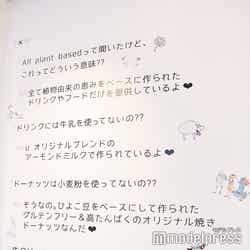 All plant basedって聞いたけど、
これってどういう意味??
全て植物由来の恵みをベースに作られた
ドリンクやフードだけを提供しているよ❤
ドリンクには牛乳を使ってないの??
u オリジナルブレンドの
アーモンドミルクで作られているよ❤
ドーナッツは小麦粉を使ってないの??
そうなの。ひよこ豆をベースにして作られた
グルテンフリー&高たんぱくのオリジナル焼き
ドーナッツなんだ❤
modelpress